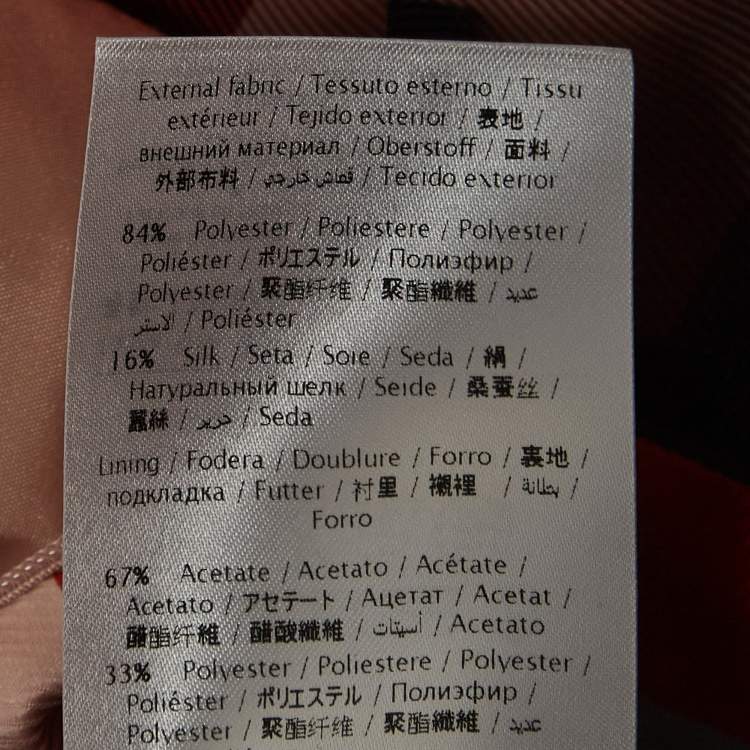 External fabric / Tessuto esterno / Tissu
extérieur / Tejido exterior / 表地 /
внешний материал / Oberstoff / 面料 /
外部布料 / قماش خارجي / Tecido exterior
84% Polyester / Poliestere / Polyester /
Poliéster / ポリエステル / Полиэфир /
Polyester / 聚酯纤维 / 聚酯纖維 / عديد
الاستر / Poliéster
16% Silk / Seta / Soie / Seda / 絹 /
Натуральный шелк / Seide / 桑蚕丝 /
蠶絲 / حرير / Seda
Lining / Fodera / Doublure / Forro / 裏地 /
подкладка / Futter / 衬里 / 襯裡 / بطانة /
Forro
67% Acetate / Acetato / Acétate /
Acetato / アセテート / Ацетат / Acetat /
醋酯纤維 / 醋酸纖維 / أسيتات / Acetato
33% Polyester / Poliestere / Polyester /
Poliéster / ポリエステル / Полиэфир /
Polyester / 聚酯纤维 / 聚酯纖維 / عديد